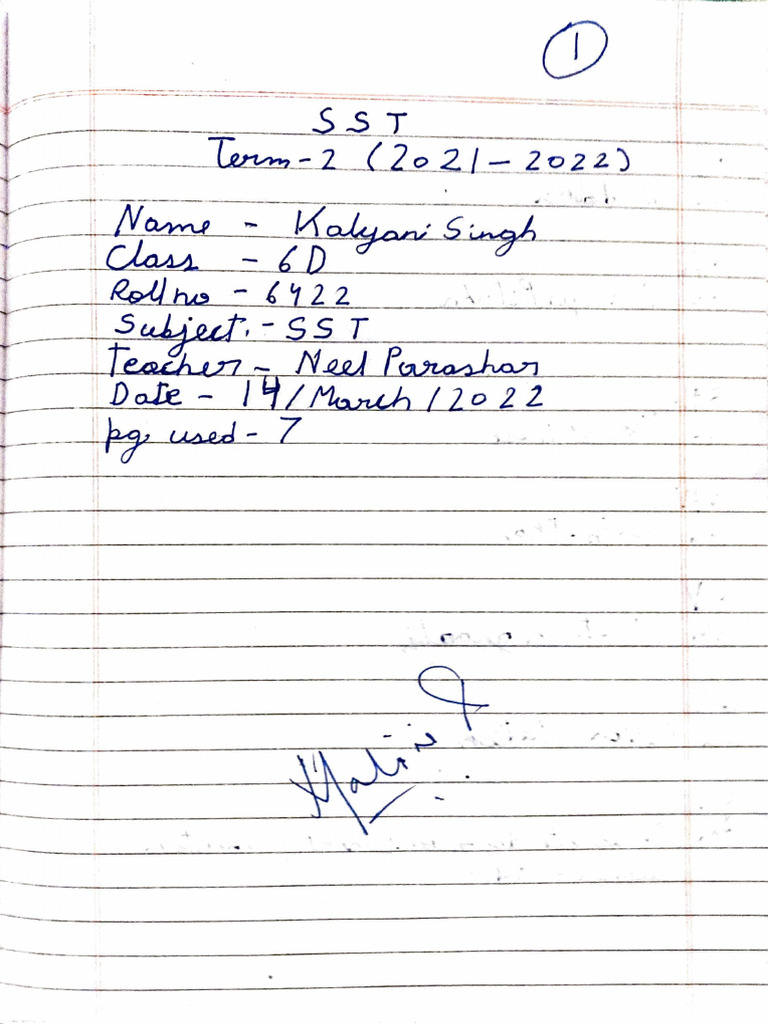 1
SST
Term-2 (2021-2022)
Name - Kalyani Singh
Class - 6D
Roll no - 6422
Subject.- SST
Teacher - Neel Parashar
Date - 14/March/2022
pg used - 7